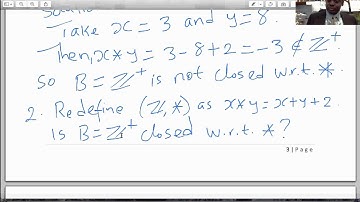 Take x = 3 and y = 8.
Then, x * y = 3 - 8 + 2 = -3 ∉ ℤ⁺.
So B = ℤ⁺ is not closed w.r.t. *.
2. Redefine (ℤ, *) as x * y = x + y + 2
is B = ℤ⁺ closed w.r.t. * ?
3 | Page